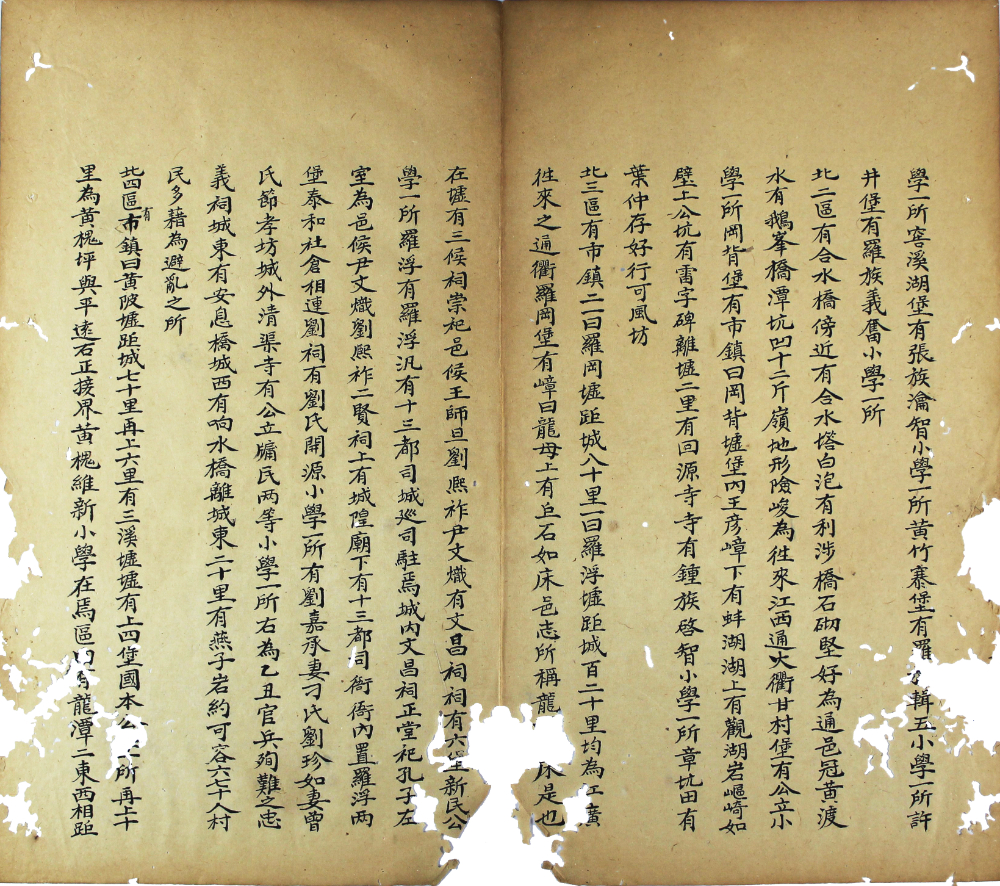 學一所窖溪湖堡有張族瀹智小學一所黄竹寨堡有羅輯五小學一所許
井堡有羅族義畬小學一所
北二區有合水橋傍近有合水塔白泡有利涉橋石砌堅好為通邑冠黄渡
水有鵝峯橋潭坑凹十二斤嶺地形險峻為徃來江西通大衢甘村堡有公立小
學一所岡背堡有市鎮曰岡背墟堡内王彦嶂下有蚌湖湖上有觀湖岩嶇崎如
壁上公坑有雷字碑離墟二里有回源寺寺有鍾族啓智小學一所章坑田有
葉仲存好行可風坊
北三區有市鎮二一曰羅岡墟距城八十里一曰羅浮墟距城百二十里均為江廣
徃來之通衢羅岡堡有嶂曰龍母上有丘石如床邑志所稱龍床是也
在墟有三侯祠崇祀邑侯王師旦劉熈祚尹文熾有文昌祠祠有六堡新民公
學一所羅浮有羅浮汎有十三都司城廵司駐焉城内文昌祠正堂祀孔子左
室為邑侯尹文熾劉熈祚二賢祠上有城隍廟下有十三都司衙衙内置羅浮两
堡泰和社倉相連劉祠有劉氏開源小學一所有劉嘉承妻刁氏劉珍如妻曾
氏節孝坊城外清渠寺有公立牗民两等小學一所右為乙丑官兵殉難之忠
義祠城東有安息橋城西有响水橋離城東二十里有燕子岩約可容六七十人村
民多藉為避亂之所
北四區有市鎮曰黄陂墟距城七十里再上六里有三溪墟墟有上四堡國本公一所再上十
里為黄槐坪與平逺石正接界黄槐維新小學在焉區内有龍潭二東西相距